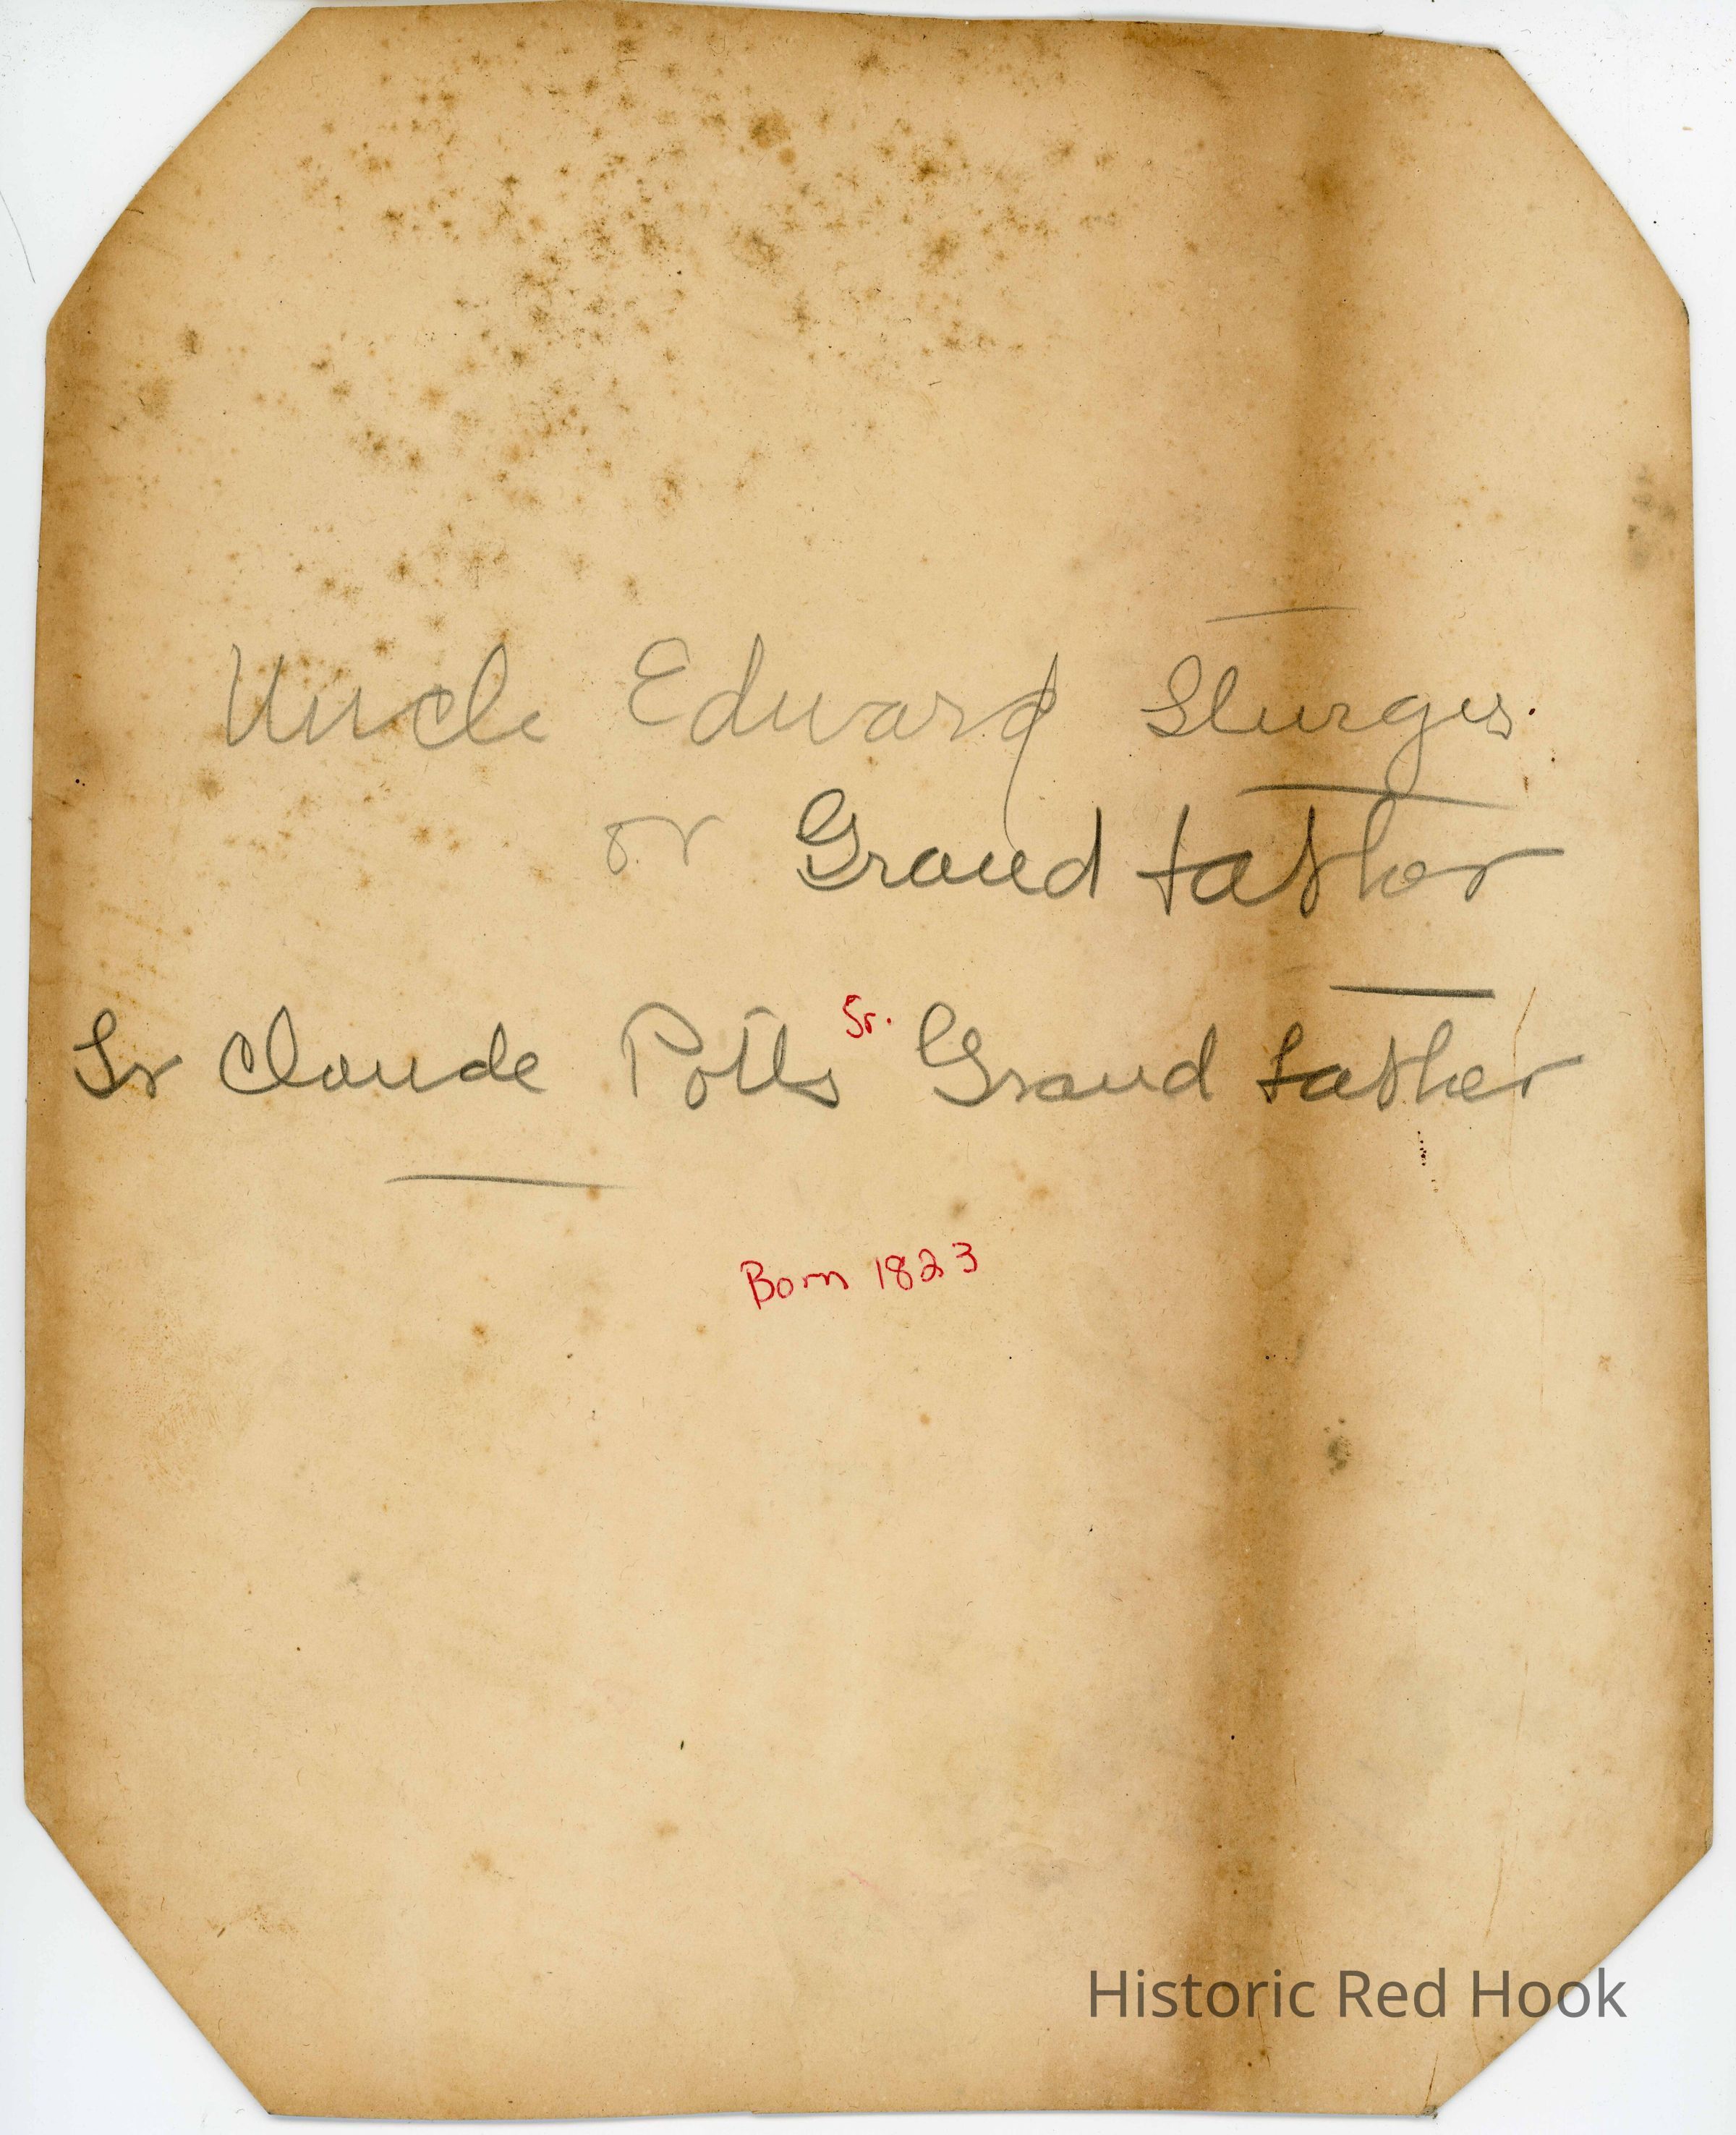 Uncle Edward Sturges.
or Grand father
Sr Claude Potts Sr. Grand father
Born 1823
Historic Red Hook